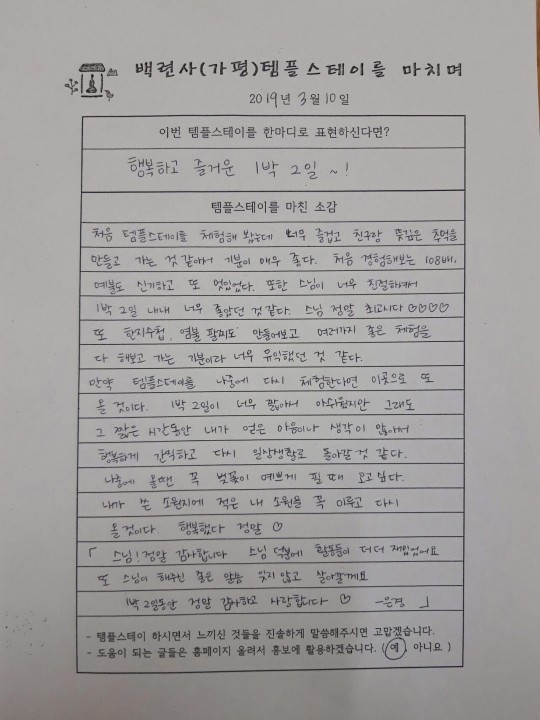 백련사(가평)템플스테이를 마치며
2019년 3월 10일
이번 템플스테이를 한마디로 표현하신다면?
행복하고 즐거운 1박 2일 ~!
템플스테이를 마친 소감
처음 템플스테이를 체험해 봤는데 너무 즐겁고 친구랑 뜻깊은 추억을
만들고 가는 것 같아서 기분이 매우 좋다. 처음 경험해보는 108배,
예불도 신기하고 또 멋있었다. 또한 스님이 너무 친절하셔서
1박 2일 내내 너무 좋았던 것 같다. 스님 정말 최고시다 ♡♡♡♡
또 한지수첩, 염불 팔찌도 만들어보고 여러가지 좋은 체험을
다 해보고 가는 기분이라 너무 유익했던 것 같다.
만약 템플스테이를 나중에 다시 체험한다면 이곳으로 또
올 것이다. 1박 2일이 너무 짧아서 아쉬웠지만 그래도
그 짧은 시간동안 내가 얻은 마음이나 생각이 많아서
행복하게 간직하고 다시 일상생활로 돌아갈 것 같다.
나중에 올땐 꼭 벚꽃이 예쁘게 필 때 오고 싶다.
내가 쓴 소원지에 적은 내 소원을 꼭 이루고 다시
올 것이다. 행복했다 정말 ♡
「 스님! 정말 감사합니다 스님 덕분에 활동들이 더 더 재밌었어요
또 스님이 해주신 좋은 말씀 잊지 않고 살아갈게요
1박 2일동안 정말 감사하고 사랑합니다 ♡ -은경 」
- 템플스테이 하시면서 느끼신 것들을 진솔하게 말씀해주시면 고맙겠습니다.
- 도움이 되는 글들은 홈페이지 올려서 홍보에 활용하겠습니다. (예, 아니요)